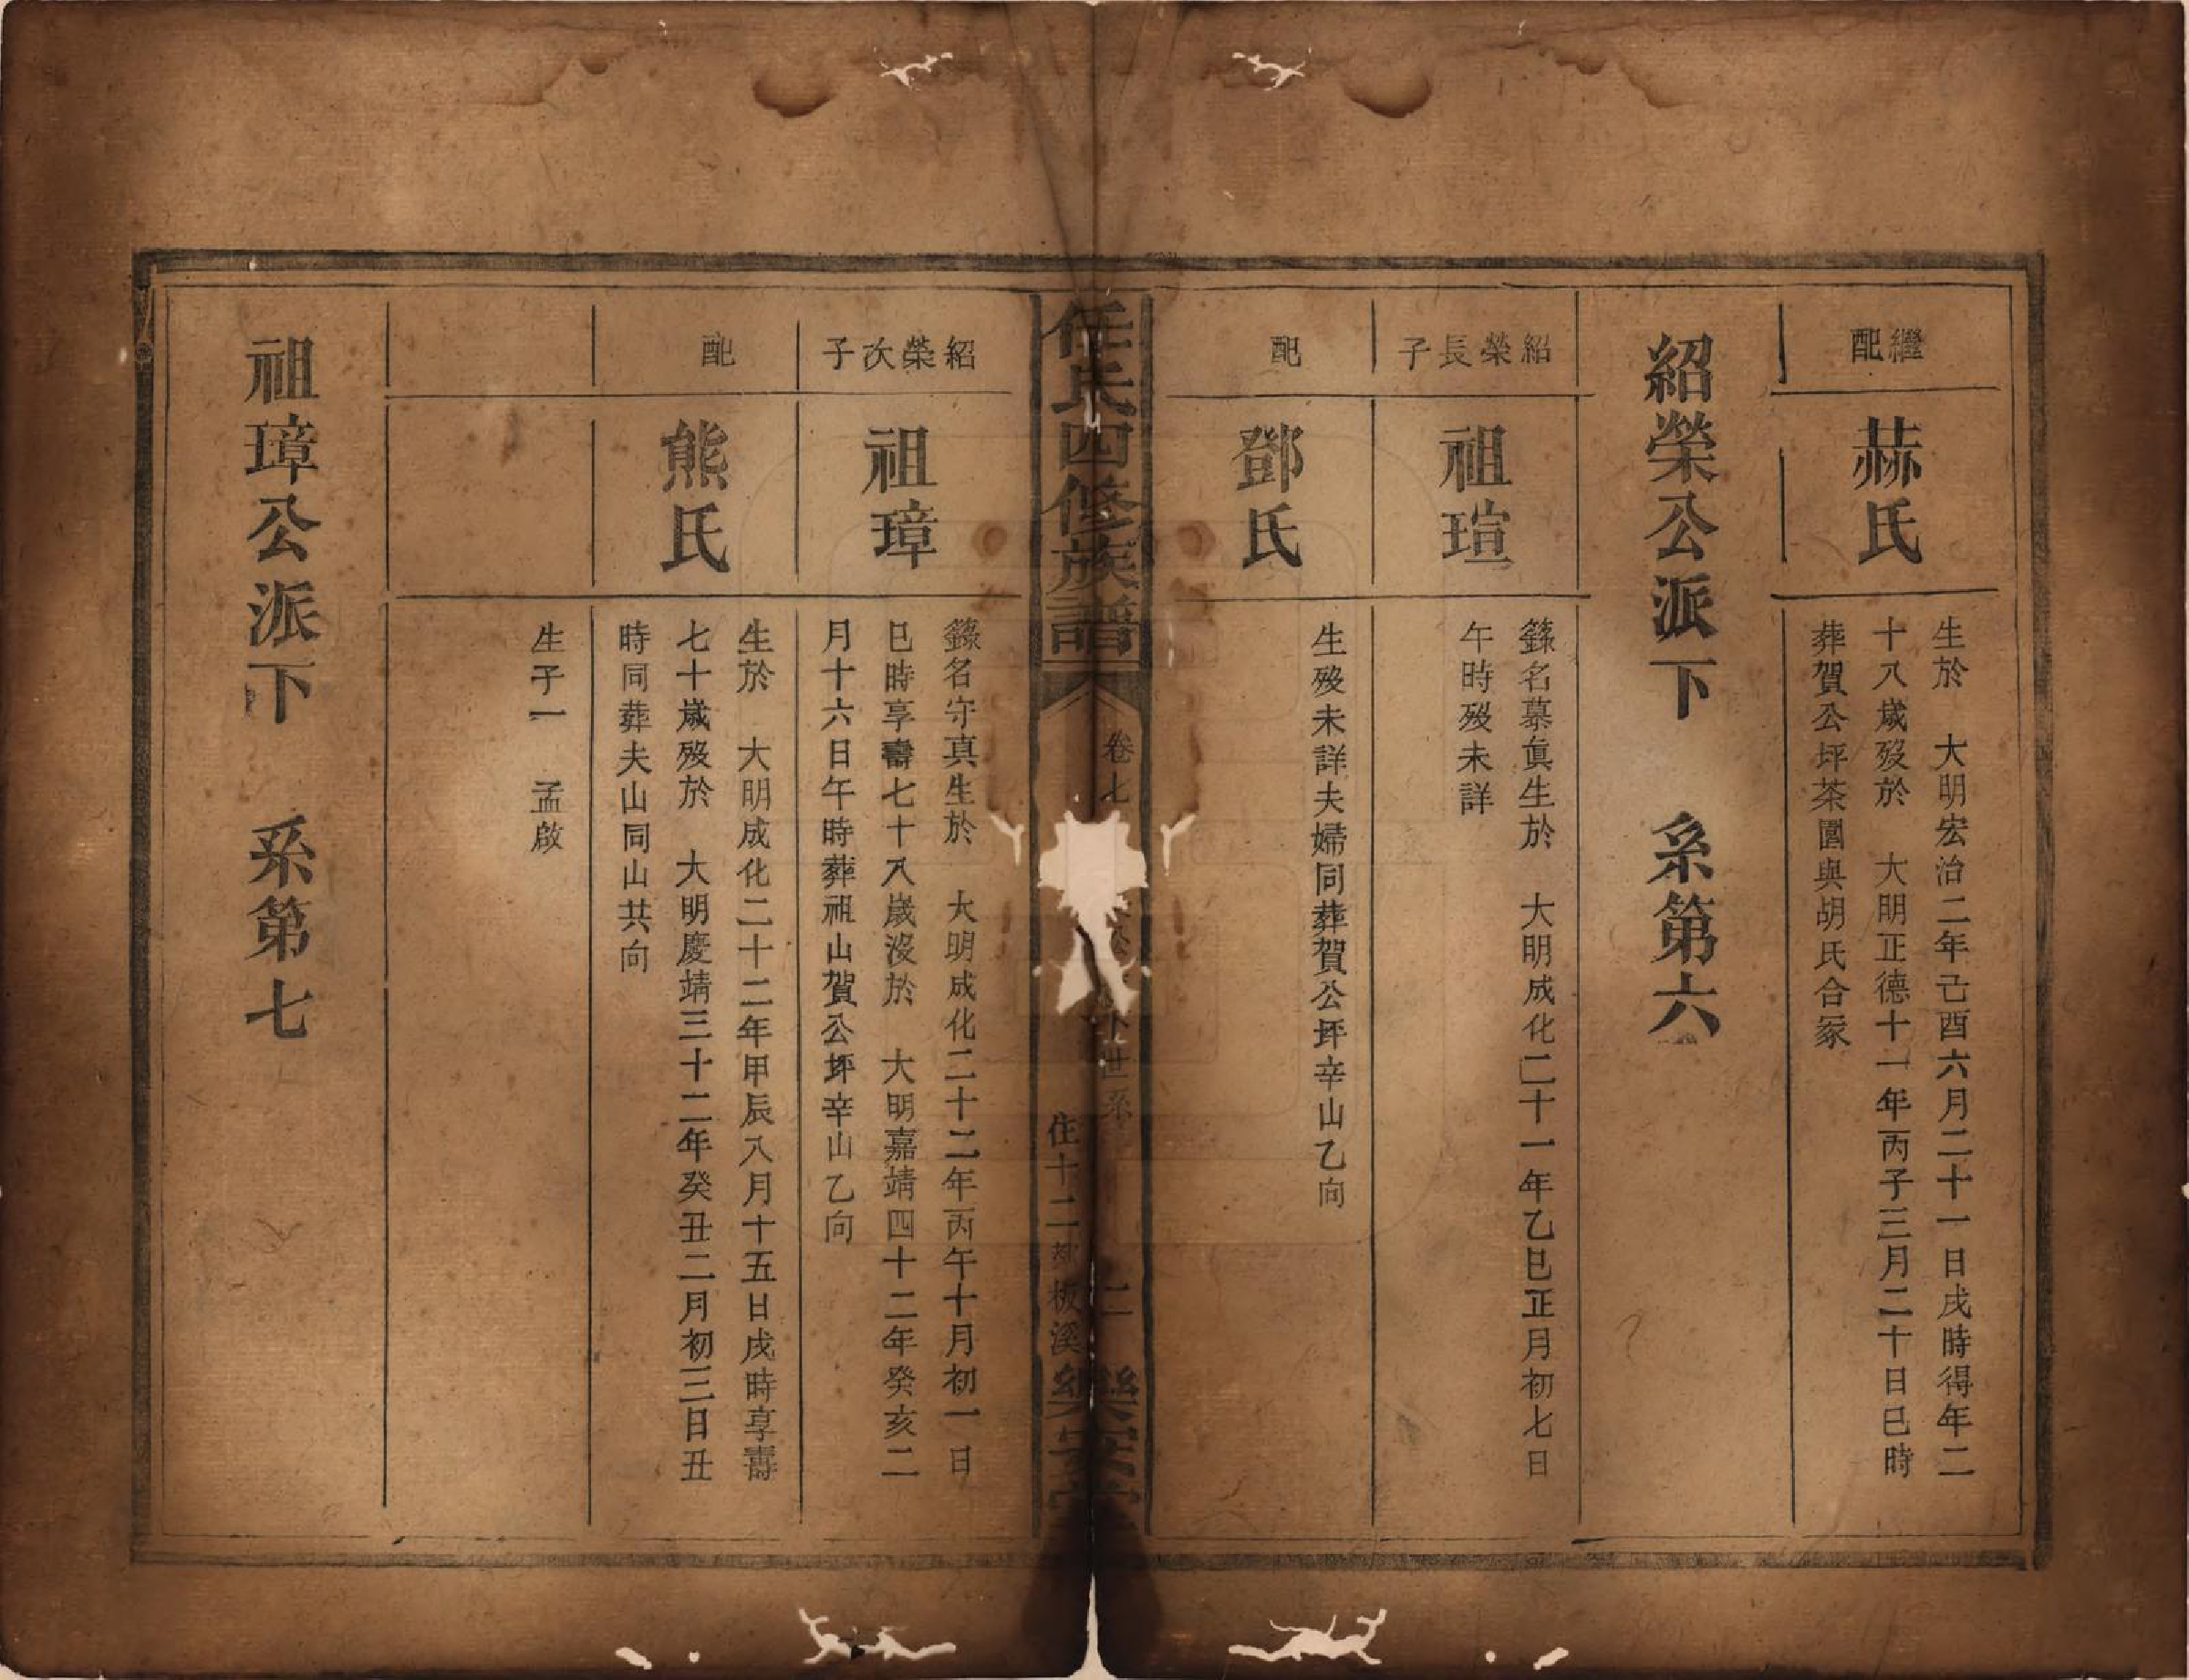 繼配
赫氏
生於　大明宏治二年己酉六月二十一日戌時得年二
十八歲歿於　大明正德十一年丙子三月二十日巳時
葬賀公坪茶園與胡氏合冢
紹榮公派下　系第六
紹榮長子
祖瑄
籙名慕眞生於　大明成化二十一年乙巳正月初七日
午時歿未詳
配
鄧氏
生歿未詳夫婦同葬賀公坪辛山乙向
任氏四修族譜
卷七
世系
二
樂安堂
住十二都板溪
紹榮次子
祖璋
籙名守真生於　大明成化二十二年丙午十月初一日
巳時享壽七十八歲沒於　大明嘉靖四十二年癸亥二
月十六日午時葬祖山賀公坪辛山乙向
配
熊氏
生於　大明成化二十二年甲辰八月十五日戌時享壽
七十歲歿於　大明慶靖三十二年癸丑二月初三日丑
時同葬夫山同山共向
生子一　孟啟
祖璋公派下　系第七